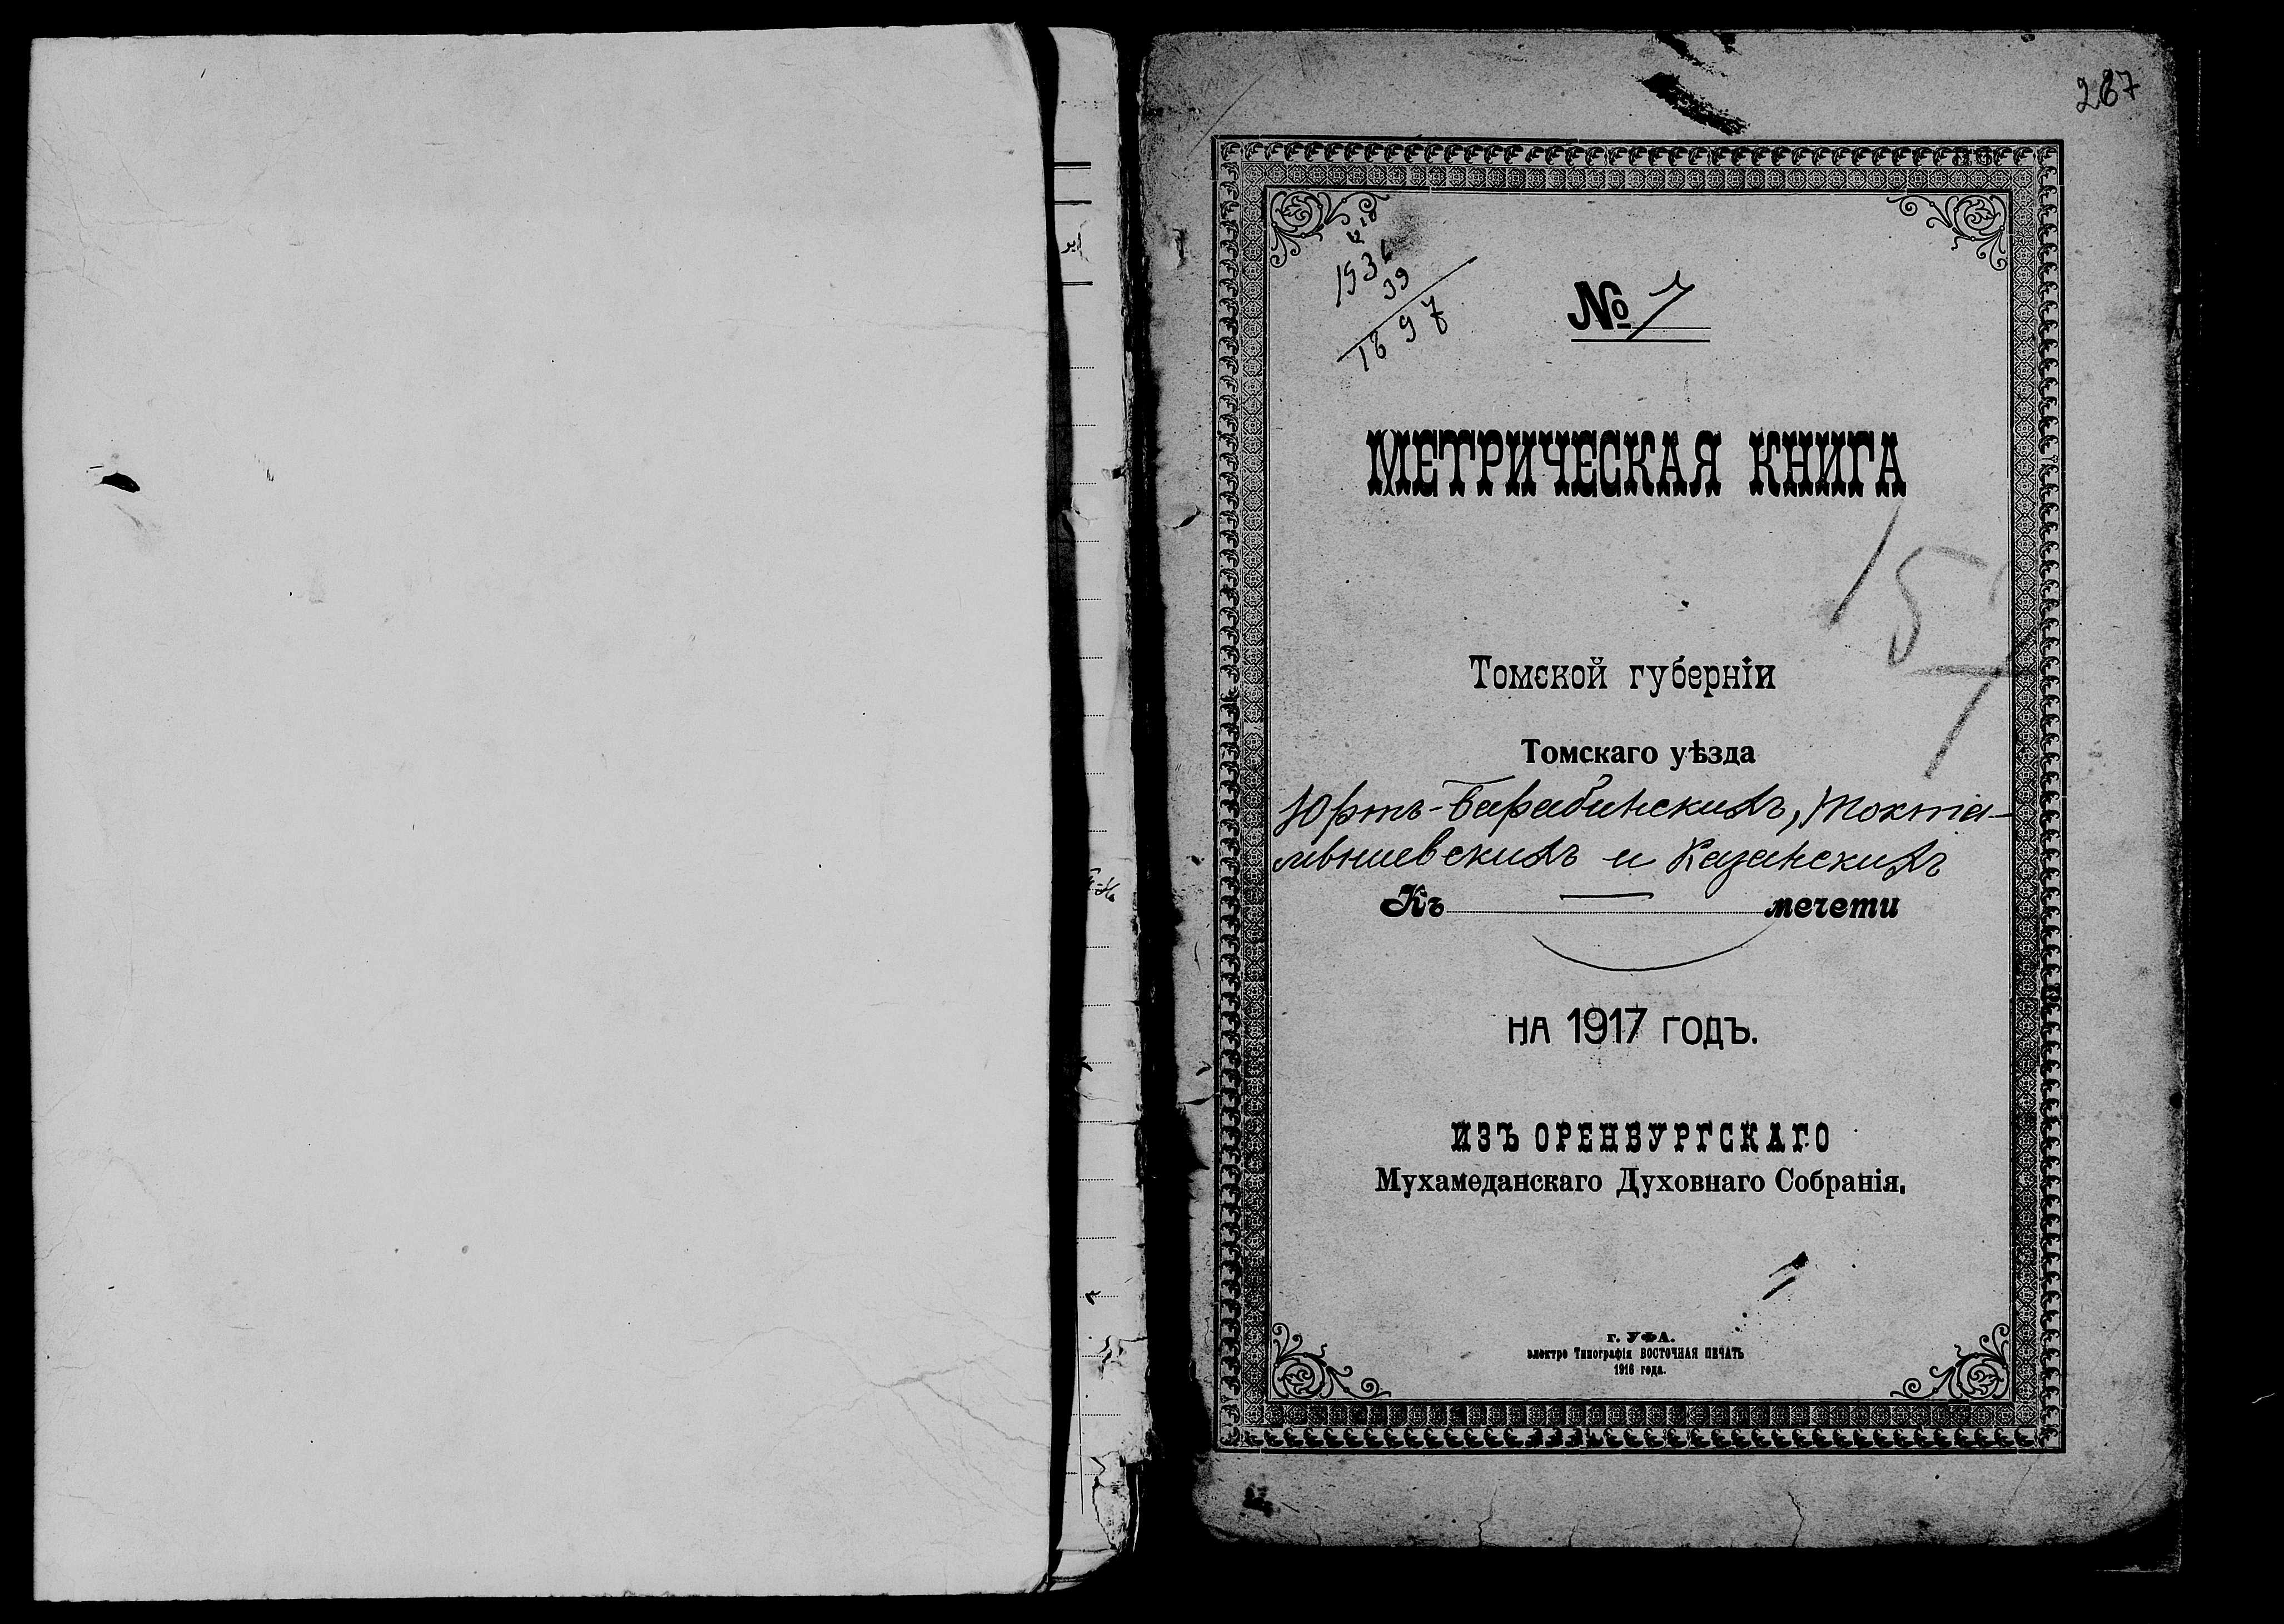 287
1936
39
1897
№ 7
МЕТРИЧЕСКАЯ КНИГА
15
7
Томской губерніи
Томскаго уѣзда
Юртъ-Барабинскихъ, Токта-
мышевскихъ и Казанскихъ
Къ мечети
на 1917 годъ.
ИЗЪ ОРЕНБУРГСКАГО
Мухамеданскаго Духовнаго Собранія.
г. УФА.
электро Типографія ВОСТОЧНАЯ ПЕЧАТЬ
1916 года.